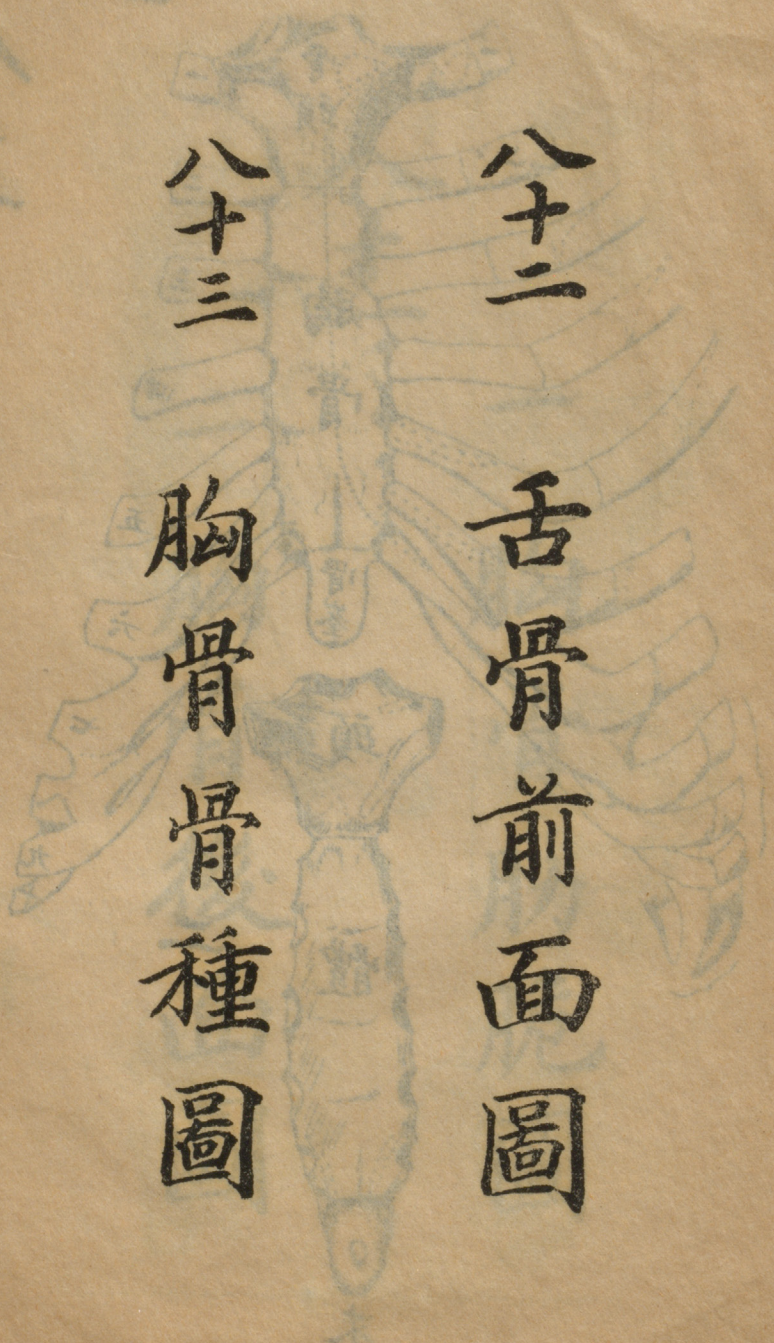 八十二 舌骨前面圖
八十三 胸骨骨種圖